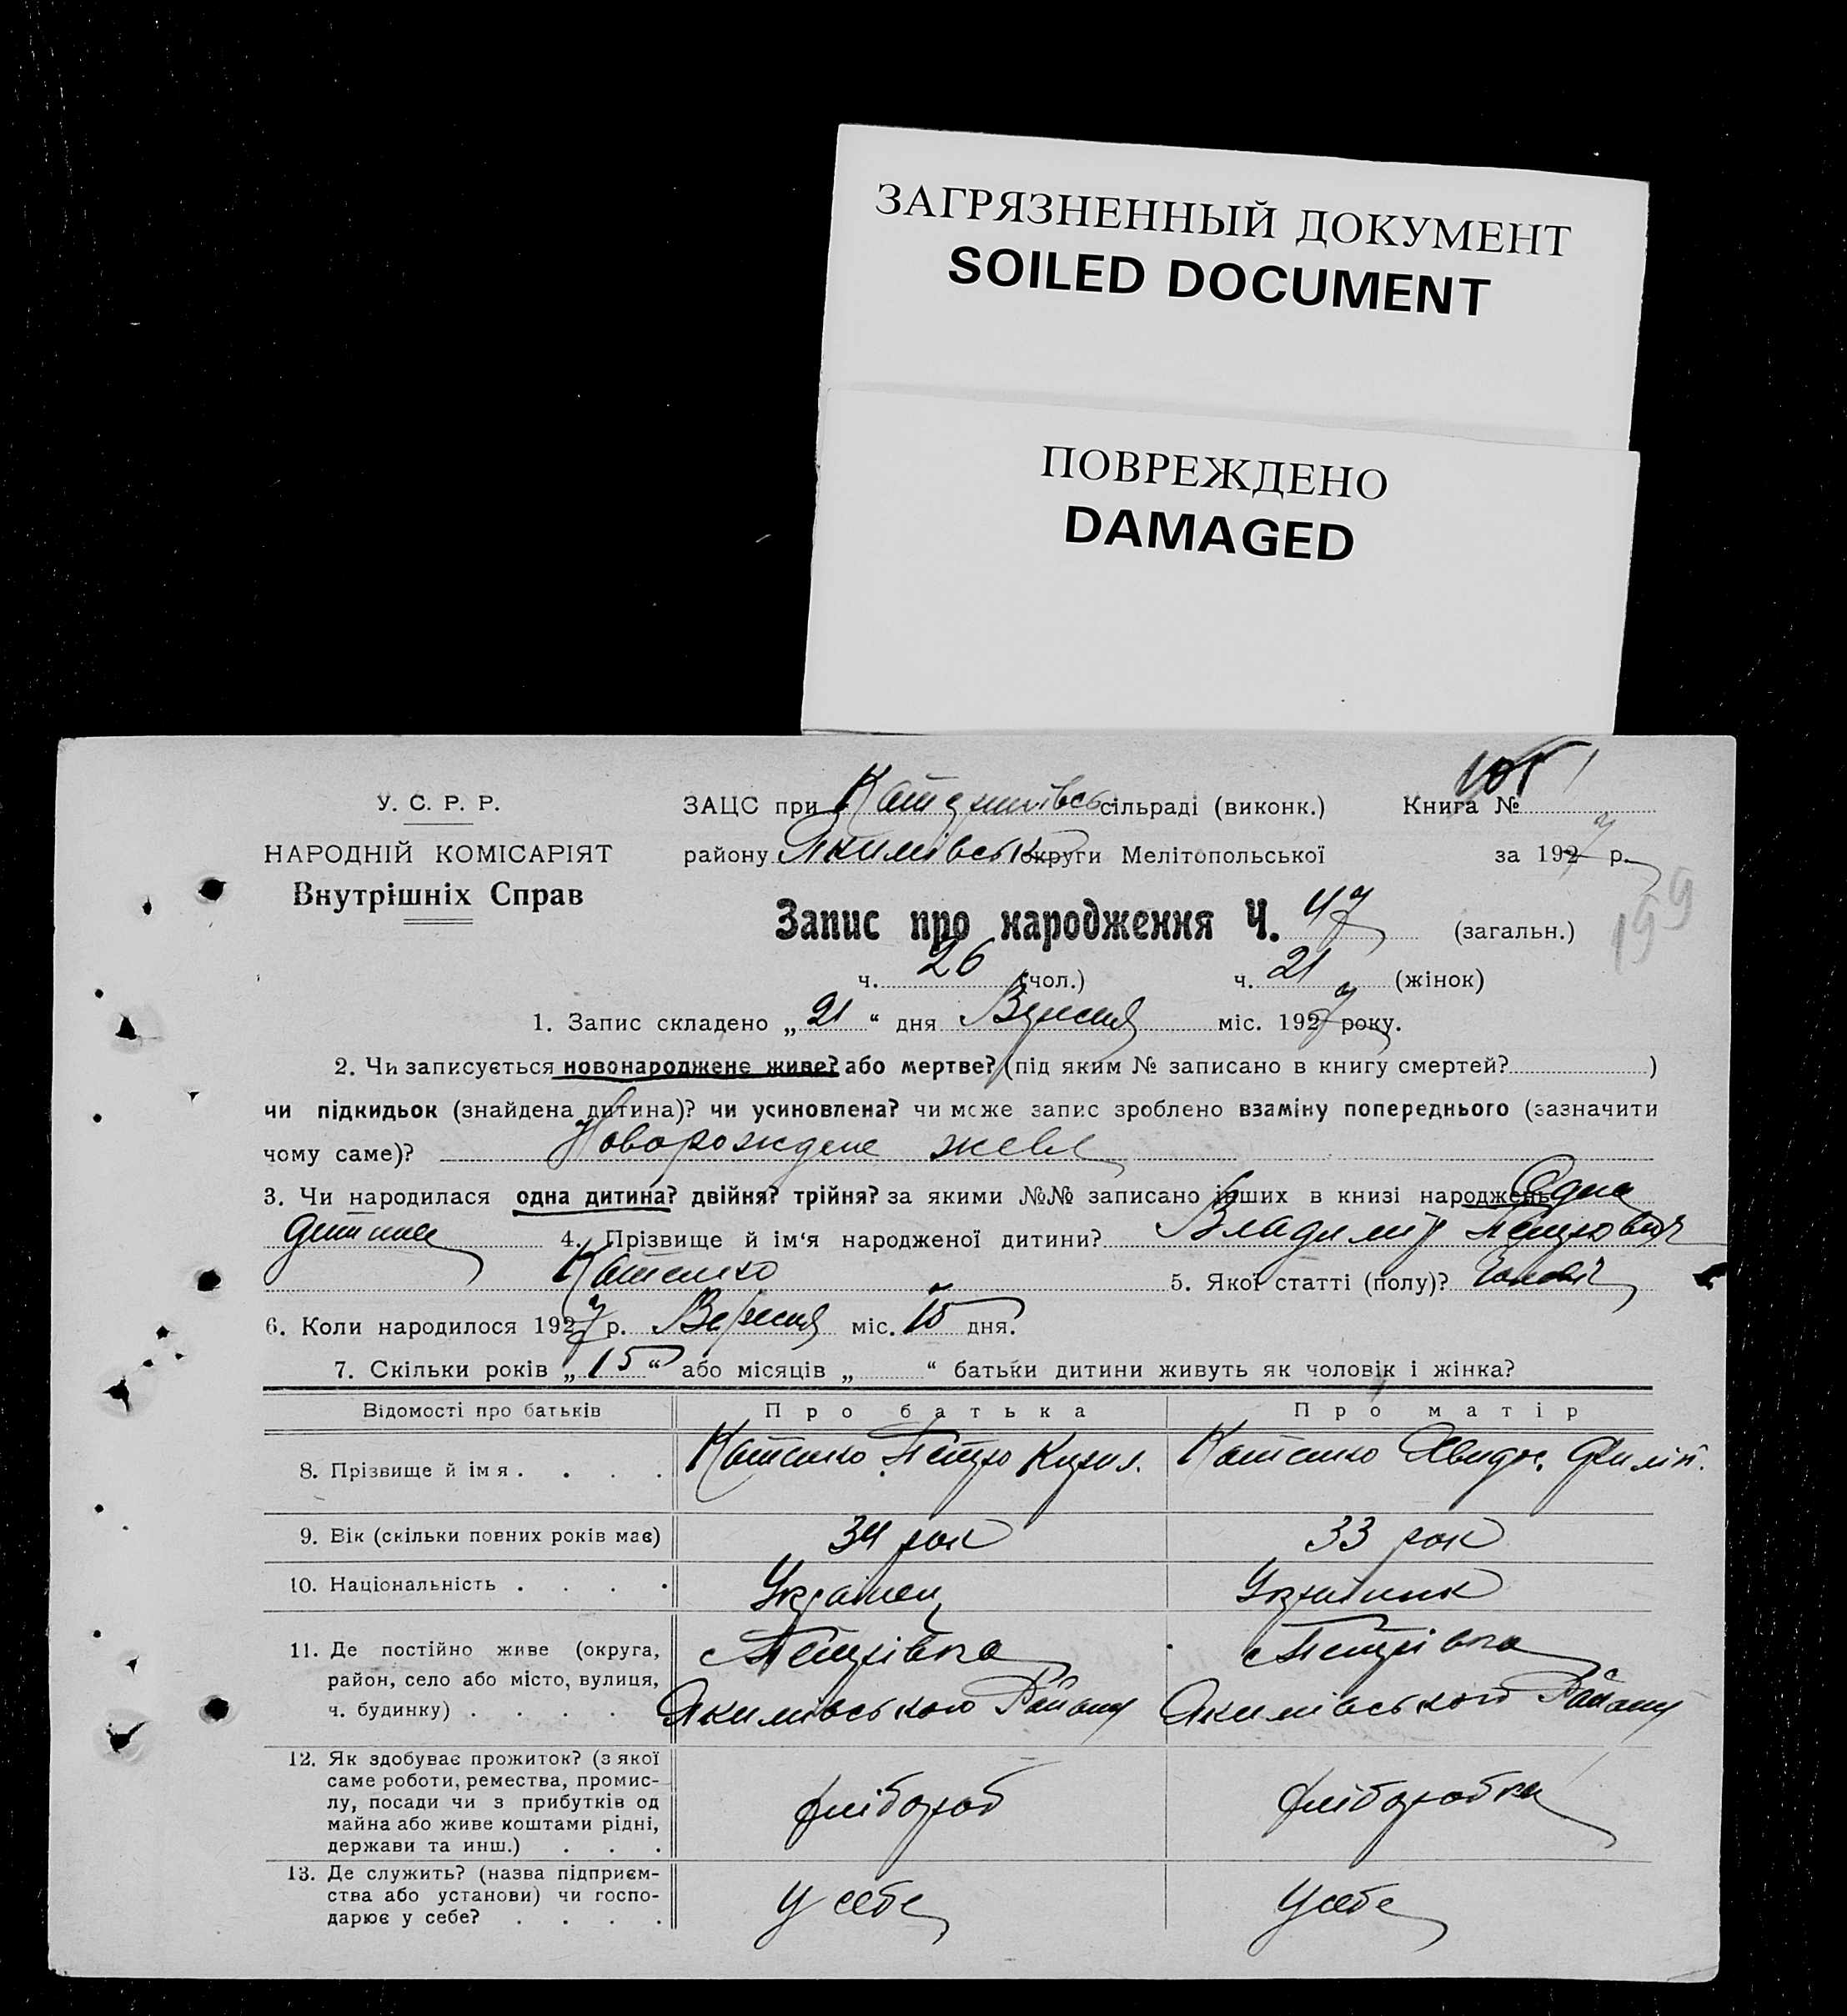 ЗАГРЯЗНЕННЫЙ ДОКУМЕНТ
SOILED DOCUMENT
ПОВРЕЖДЕНО
DAMAGED
У. С. Р. Р.
НАРОДНІЙ КОМІСАРІЯТ
Внутрішніх Справ
ЗАЦС при сільраді (виконк.) Книга №
району Якимівськ округи Мелітопольської за 1927 р.
199
Запис про народження Ч. 47 (загальн.)
ч. 26 (чол.) ч. 21 (жінок)
1. Запис складено „ 21 “ дня Вересня міс. 1927 року.
2. Чи записується новонароджене живе? або мертве? (під яким № записано в книгу смертей? )
чи підкидьок (знайдена дитина)? чи усиновлена? чи може запис зроблено взаміну попереднього (зазначити
чому саме)? Новорождене живе
3. Чи народилася одна дитина? двійня? трійня? за якими №№ записано інших в книзі народжень Одна
дитина 4. Прізвище й ім‘я народженої дитини? Владимир Петрович
Катенко 5. Якої статті (полу)? Чоловіч
6. Коли народилося 1927 р. Вересня міс. 15 дня.
7. Скільки років „ 15 “ або місяців „ “ батьки дитини живуть як чоловік і жінка?
Відомості про батьків Про батька Про матір
8. Прізвище й імя . . . . Катенко Петро Кирил. Катенко Явдок. Филіп.
9. Вік (скільки повних років має) 34 рок 33 рок
10. Національність . . . . Українец Українк
11. Де постійно живе (округа, Петрівка Петрівка
район, село або місто, вулиця,
ч. будинку) . . . . Якимівського Району Якимівського Району
12. Як здобуває прожиток? (з якої
саме роботи, ремества, промис-
лу, посади чи з прибутків од хлібороб хлібаробка
майна або живе коштами рідні,
держави та инш.) . . .
13. Де служить? (назва підприєм-
ства або установи) чи госпо- У себе У себе
дарює у себе? . . . .